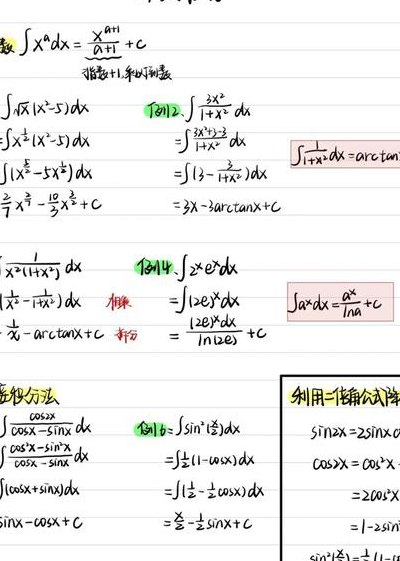 数 ∫x^a dx = x^{a+1}/(a+1) + C
指数+1,
∫√x(x²-5)dx
=∫x^{1/2}(x²-5)dx
∫(x^{5/2}-5x^{1/2})dx
2/7 x^{7/2} - 10/3 x^{3/2} + C
例2、∫3x²/(1+x²) dx
=∫(3x²+3-3)/(1+x²) dx
=∫(3-3/(1+x²))dx
=3x-3arctanx+C
∫1/(1+x²) dx=arctan
∫1/(x²(1+x²)) dx
(1/x²-1/(1+x²))dx
1/x-arctanx+C
拆分
例4、∫2^x e^x dx
=∫(2e)^x dx
=(2e)^x dx/ln(2e) + C
∫a^x dx=a^x/lna+C
积分方法
∫cos2x/(cosx-sinx) dx
∫(cos²x-sin²x)/(cosx-sinx) dx
∫(cosx+sinx)dx
sinx-cosx+C
例6=∫sin²(x/2)dx
=∫1/2(1-cosx)dx
=∫(1/2-1/2cosx)dx
=x/2-1/2sinx+C
利用二倍角公式降
sin2x=2sinx
cos2x=cos²x-
=2cos²x
=1-2sin²
sin²(x/2)=1/2(1-